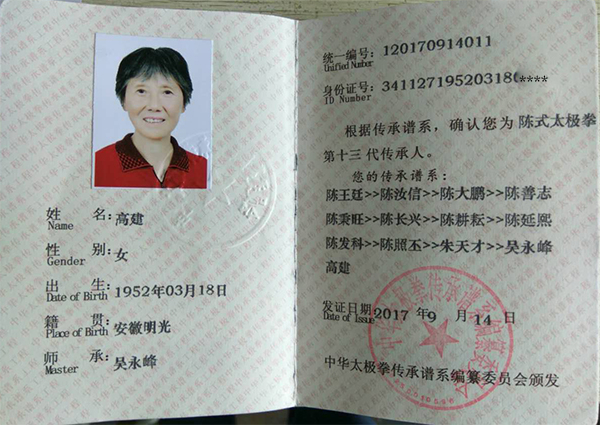 姓 名: 高建
Name
性 别: 女
Gender
出 生 1952年03月18日
Date of Birth
籍 贯: 安徽明光
Place of Birth
师 承: 吴永峰
Master
统一编号: 120170914011
Unified Number
身份证号: 341127195203186****
ID Number
根据传承谱系，确认您为 陈式太极拳
第十三 代传承人。
您的传承谱系:
陈王廷>>陈汝信>>陈大鹏>>陈善志
陈秉旺>>陈长兴>>陈耕耘>>陈延熙
陈发科>>陈照丕>>朱天才>>吴永峰
高建
发证日期: 2017 年 9 月 14 日
Date of Issue
中华太极拳传承谱系编纂委员会颁发